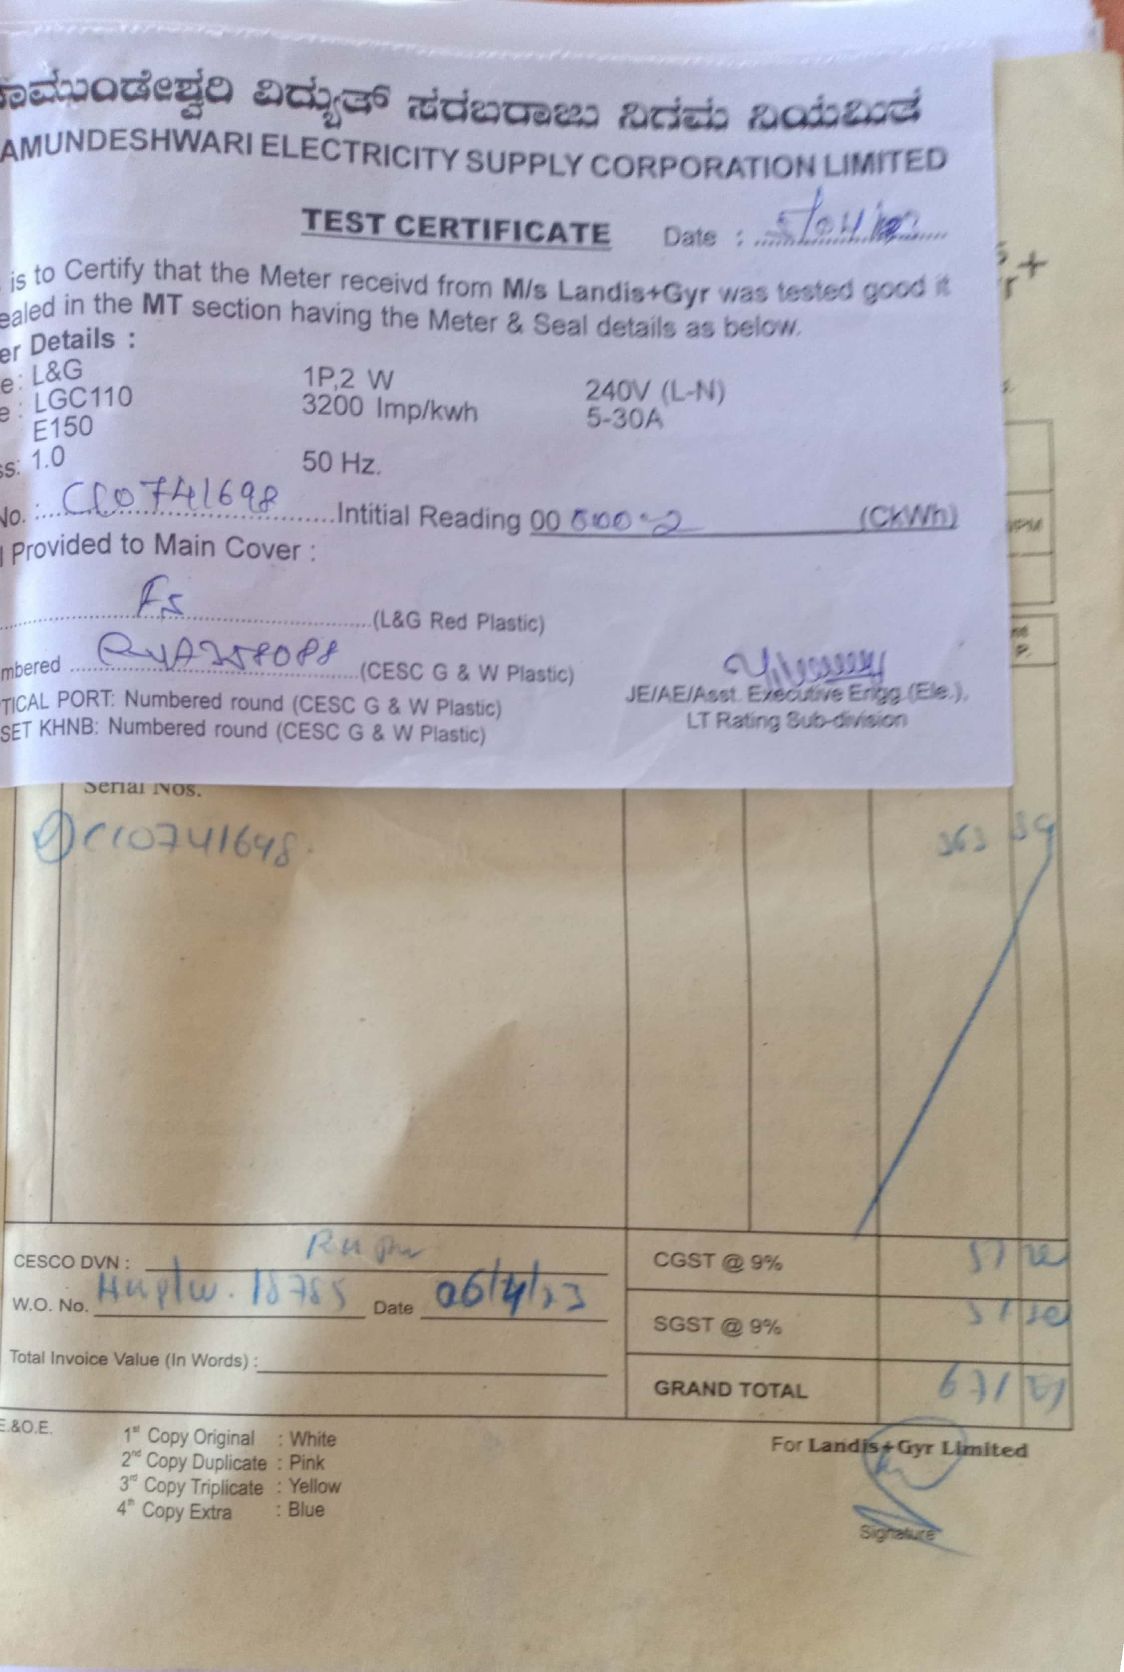 ಾಮುಂಡೇಶ್ವರಿ ವಿದ್ಯುತ್ ಸರಬರಾಜು ನಿಗಮ ನಿಯಮಿತ
AMUNDESHWARI ELECTRICITY SUPPLY CORPORATION LIMITED
TEST CERTIFICATE Date :
is to Certify that the Meter receivd from M/s Landis+Gyr was tested good it
ealed in the MT section having the Meter & Seal details as below.
er Details :
e : L&G 1P,2 W 240V (L-N)
e : LGC110 3200 Imp/kwh 5-30A
E150
ss: 1.0 50 Hz.
No. : CC0741698 Intitial Reading 00 (CkWh)
l Provided to Main Cover :
(L&G Red Plastic)
mbered (CESC G & W Plastic)
TICAL PORT: Numbered round (CESC G & W Plastic)
SET KHNB: Numbered round (CESC G & W Plastic)
JE/AE/Asst. Executive Engg.(Ele.),
LT Rating Sub-division
Serial Nos.
CESCO DVN :
W.O. No. 18785 Date 06/4/23
Total Invoice Value (In Words) :
CGST @ 9%
SGST @ 9%
GRAND TOTAL
E.&O.E.
1st Copy Original : White
2nd Copy Duplicate : Pink
3rd Copy Triplicate : Yellow
4th Copy Extra : Blue
For Landis+Gyr Limited
Signature